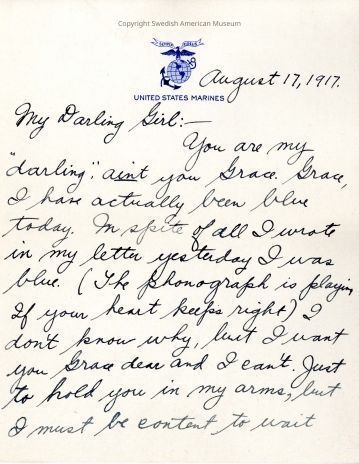 Copyright Swedish American Museum
SEMPER FIDELIS
August 17, 1917.
UNITED STATES MARINES
My Darling Girl:—
You are my
"darling". ain't you Grace. Grace,
I have actually been blue
today. In spite of all I wrote
in my letter yesterday I was
blue. (The phonograph is playing
If your heart keeps right) I
don't know why, but I want
you Grace dear and I can't. Just
to hold you in my arms, but
I must be content to wait